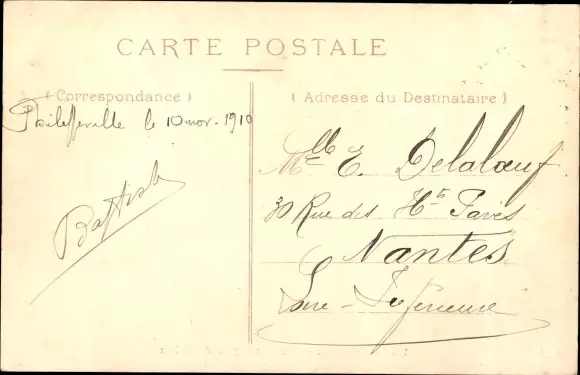 CARTE POSTALE
( Correspondance )
Philippeville le 10 nov. 1910
Baptiste
( Adresse du Destinataire )
Mlle E. Delalœuf
30 Rue des Hts Pavés
Nantes
Loire-Inférieure